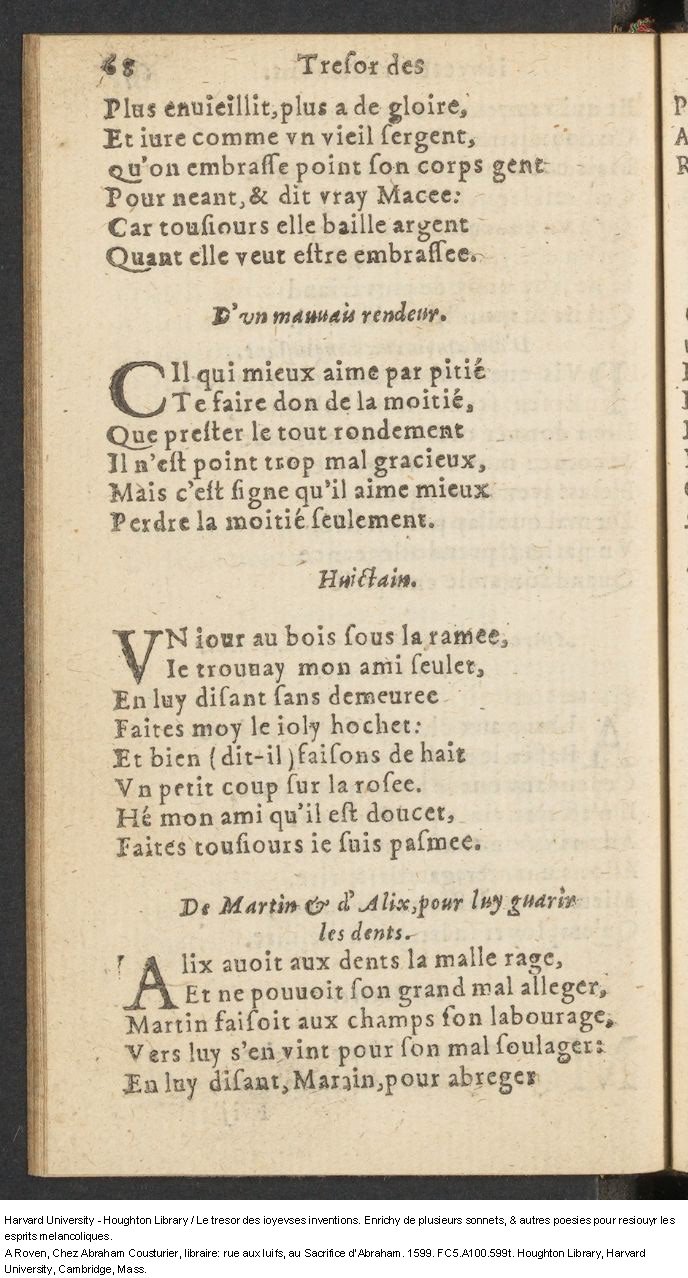 68 Treſor des
Plus enuieillit, plus a de gloire,
Et iure comme vn vieil ſergent,
qu'on embraſſe point ſon corps gent
Pour neant, & dit vray Macee:
Car touſiours elle baille argent
Quant elle veut eſtre embraſſee.
D'vn mauuais rendeur.
CIl qui mieux aime par pitié
Te faire don de la moitié,
Que preſter le tout rondement
Il n'eſt point trop mal gracieux,
Mais c'eſt ſigne qu'il aime mieux
Perdre la moitié ſeulement.
Huictain.
VN iour au bois ſous la ramee,
Ie trouuay mon ami ſeulet,
En luy diſant ſans demeuree
Faites moy le ioly hochet:
Et bien (dit-il) faiſons de hait
Vn petit coup ſur la roſee.
Hé mon ami qu'il eſt doucet,
Faites touſiours ie ſuis paſmee.
De Martin & d'Alix, pour luy guarir
les dents.
Alix auoit aux dents la malle rage,
Et ne pouuoit ſon grand mal alleger,
Martin faiſoit aux champs ſon labourage,
Vers luy s'en vint pour ſon mal ſoulager:
En luy diſant, Martin, pour abreger
Harvard University - Houghton Library / Le tresor des ioyevses inventions. Enrichy de plusieurs sonnets, & autres poesies pour resiouyr les
esprits melancoliques.
A Roven, Chez Abraham Cousturier, libraire: rue aux Iuifs, au Sacrifice d'Abraham. 1599. FC5.A100.599t. Houghton Library, Harvard
University, Cambridge, Mass.